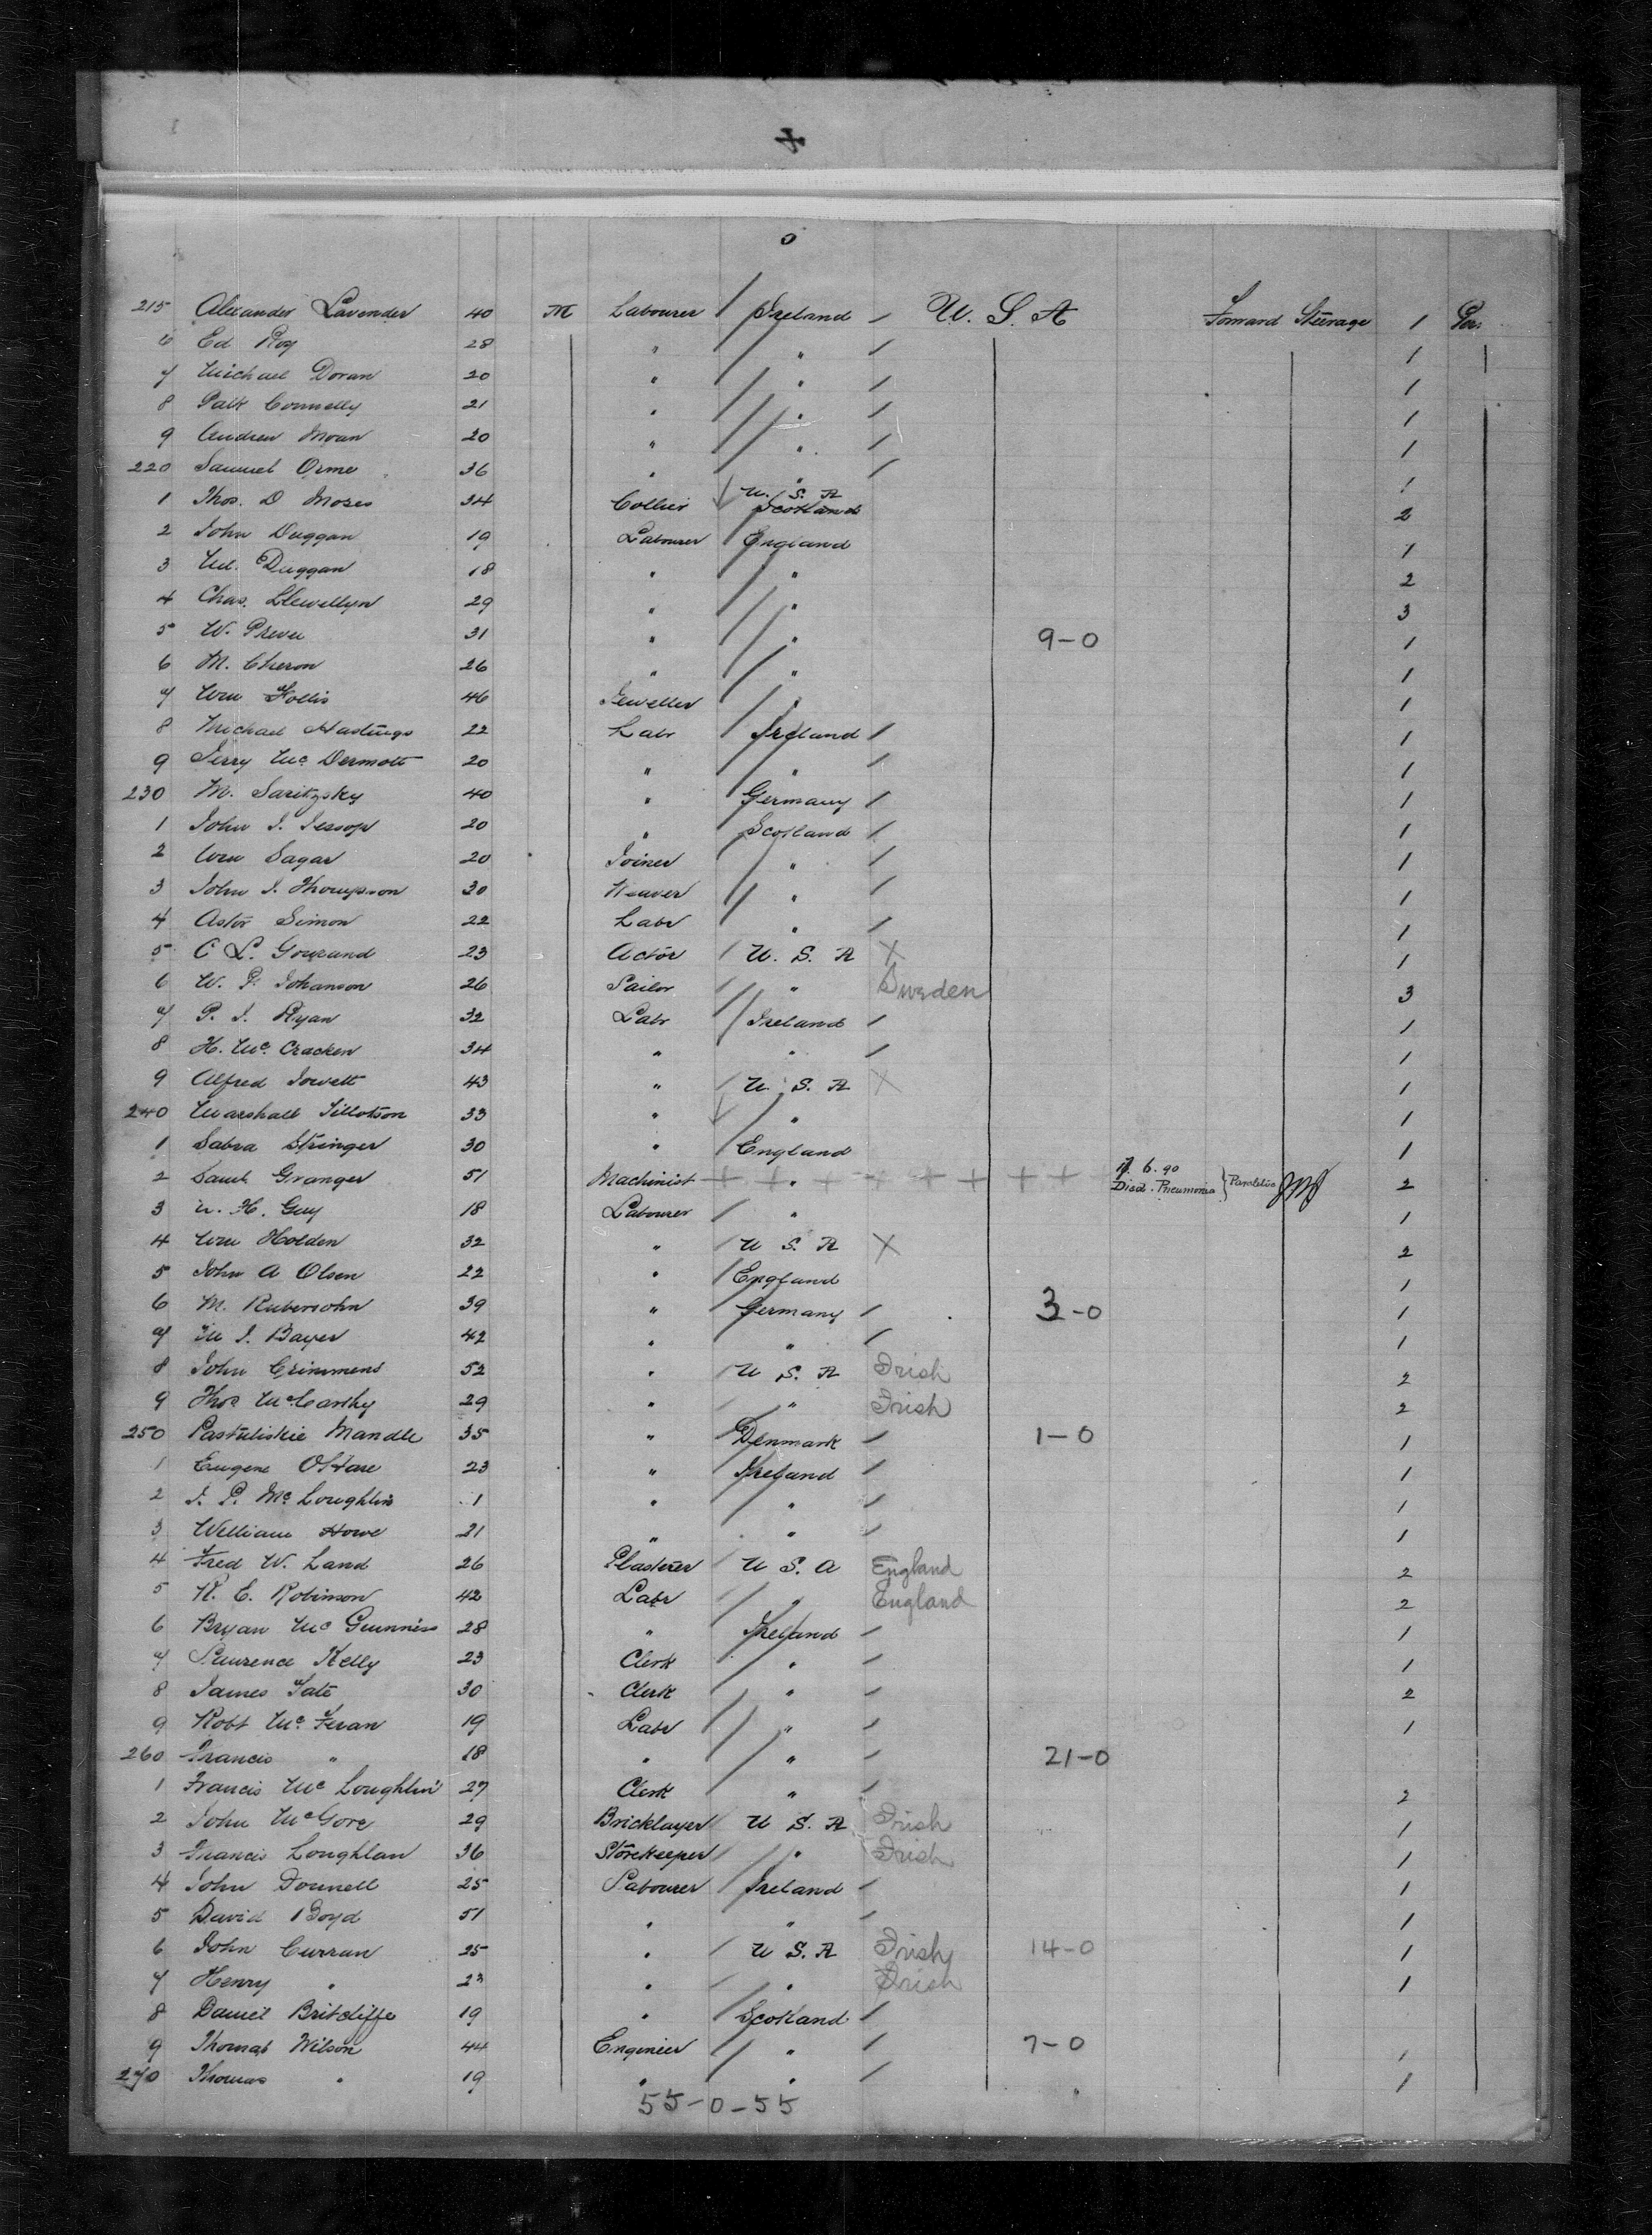 215 Alexander Lavender 40 M Labourer / Ireland / U. S. A Forward Steerage 1
6 Ed Roy 28 " " / 1
7 Michael Doran 20 " " / 1
8 Patk Connelly 21 " " / 1
9 Andrew Moan 20 " " / 1
220 Samuel Orme 36 " " / 1
1 Thos. D Moses 34 Collier U. S. A Scotland 2
2 John Duggan 19 Labourer England 1
3 Duggan 18 " " 2
4 Chas. Llewellyn 29 " " 3
5 W. 31 " " 9-0 1
6 M. Cheron 26 " " 1
7 Wm Hollis 46 Jeweller " 1
8 Michael Hastings 22 Labr Ireland / 1
9 Jerry McDermott 20 " " / 1
230 M. Saritzsky 40 " Germany / 1
1 John J. Jessop 20 " Scotland / 1
2 Wm Sagar 20 Joiner " / 1
3 John J. Thompson 30 Weaver " / 1
4 Astor Simon 22 Labr " / 1
5 C L. Gourand 23 Actor / U. S. A X 1
6 W. P. Johanson 26 Sailor " Sweden 3
7 P. J. Ryan 32 Labr Ireland / 1
8 H. McCracken 34 " " / 1
9 Alfred Jowett 43 " / U. S. A X 1
240 Marshall Tillotson 33 " " 1
1 Sabra Stringer 30 " England 1
2 Saml Granger 51 Machinist + + " + + + + + 6.90 Died. Pneumonia } 2
3 H. Guy 18 Labourer / " 1
4 Wm Holden 32 " / U S. A X 2
5 John A Olsen 22 " / England 1
6 M. Rubersohn 39 " Germany / 3-0 1
7 M J. Bayer 42 " " / 1
8 John Crimmens 52 " / U S. A Irish 2
9 Thos McCarthy 29 " " Irish 2
250 Pastuliskie Mandle 35 " Denmark / 1-0 1
1 Eugene O'Hare 23 " Ireland / 1
2 J. P. McLoughlin 1 " " / 1
3 William Howe 21 " " / 1
4 Fred W. Land 26 Plasterer U S. A England 2
5 R. E. Robinson 42 Labr " England 2
6 Bryan McGuinness 28 " Ireland / 1
7 Laurence Kelly 23 Clerk " / 1
8 James Tate 30 Clerk " / 2
9 Robt McFeran 19 Labr " / 1
260 Francis " 18 " " / 21-0
1 Francis McLoughlin 27 Clerk " / 2
2 John McGore 29 Bricklayer U S. A Irish 1
3 Francis Loughlan 36 Storekeeper " Irish 1
4 John Donnell 25 Labourer Ireland / 1
5 David Boyd 51 " " / 1
6 John Curran 25 " / U S. A Irish 14-0 1
7 Henry " 23 " " Irish 1
8 Daniel Britcliffe 19 " Scotland /
9 Thomas Wilson 44 Engineer " / 7-0 1
270 Thomas " 19 " " / 1
55-0-55